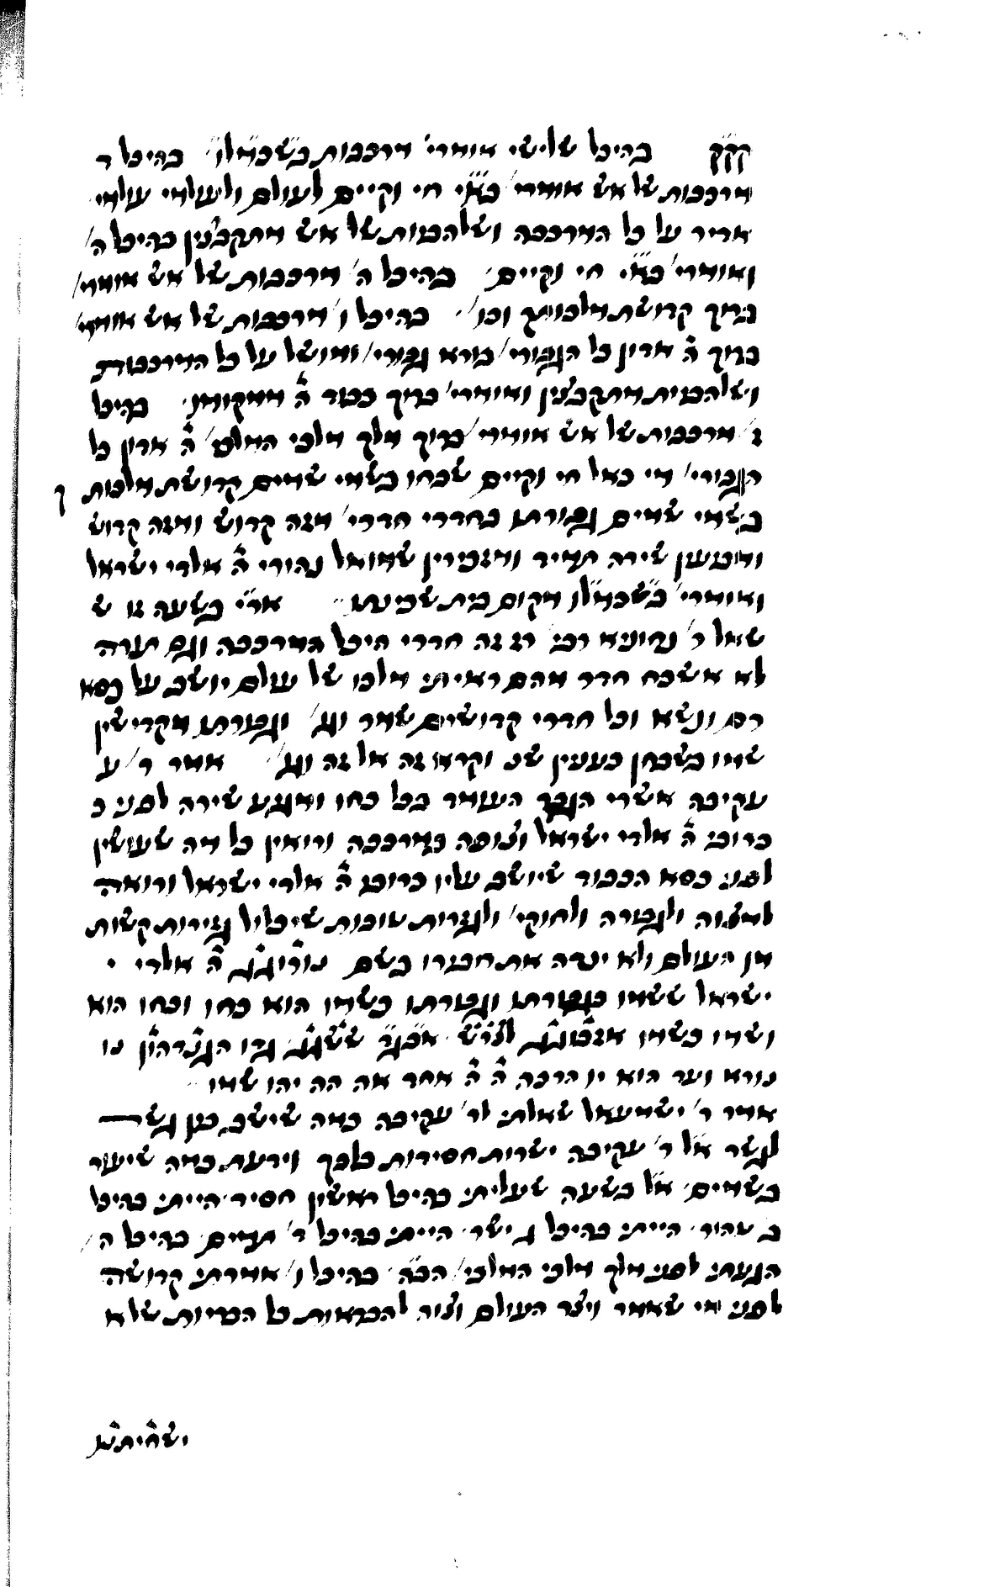 קקק בהיכל שלישי אומרי' מרכבות בשכמל"ו בהיכל ד
מרכבות של אש אומרי' בא"י חי וקיים לעולם ולעולמי עולמי'
אדיר על כל המרכבה ושלהבות של אש מתקבצין בהיכל ה'
ואומרי' בא"י חי וקיים בהיכל ה' מרכבות של אש אומרי'
ברוך קדושת מלכותך וכו' בהיכל ו' מרכבות של אש אומרי'
ברוך ה' אדון כל הגבורי' בורא גבורי' ומושל על כל המרכבות
ושלהבות מתקבצין ואומרי' ברוך כבוד ה' ממקומו בהיכל
ז' מרכבות של אש אומרי' ברוך מלך מלכי המלכי' ה' אדון כל
הגבורי' מי כאל חי וקיים שבחו בשמי שמים קדושת מלכותו
בשמי שמים גבורתו בחדרי חדרי' מזה קדוש ומזה קדוש
ומגישין שירה תמיד ומזכירין שמואל נהורי ה' אלהי ישראל
ואומרי' בשכמל"ו מקום בית שכינתו א"ר בשעה זו ש
שאל ר' נחוניא רבי רז זה חדרי היכל המרכבה וגם תורה
לא אשכח חדר מהם ראיתי מלכו של עולם יושב על כסא
רם ונשא וכל חדרי קדושים שמו וגו' וגבורתו מקדישין
שמו בשבחן כענין שנ' וקרא זה אל זה וגו' אמר ר' ע
עקיבה אשרי הגבר העומד בכל כחו ומגיע שירה לפני כ
כרובי ה' אלהי ישראל וצופה במרכבה ורואין כל מה שעושין
לפני כסא הכבוד שיושב עליו כרובי ה' אלהי ישראל ורואה
למצוה ולגבורה ולחוקי' ולגזרות טובות שיבטל גזירות קשות
מן העולם ולא ינדה את חבירו בשם ה' אלהי י
ישראל ששמו בגבורתו וגבורתו בשמו הוא כחו וכחו הוא
ושמו כשמו
נורא ועד הוא יו הרבה ה' ה' אחד אה הה יהו שמו
אמר ר' ישמעאל שאלתי לר' עקיבה כמה שיש בין גשר
לגשר א"ל ר' עקיבה ישרות חסידות בלבך וידעת כמה שיעור
בשמים א"ל בשעה שעליתי בהיכל ראשון חסיד הייתי בהיכל
ב טהור הייתי בהיכל ג ישר הייתי בהיכל ד' תמים בהיכל ה'
הגעתי לפני מלך מלכי המלכי' הב"ה בהיכל ו' אמרתי קדושה
לפני מי שאמר ויצר העולם וצוה להבראות כל הבריות שלא
ישחיתו